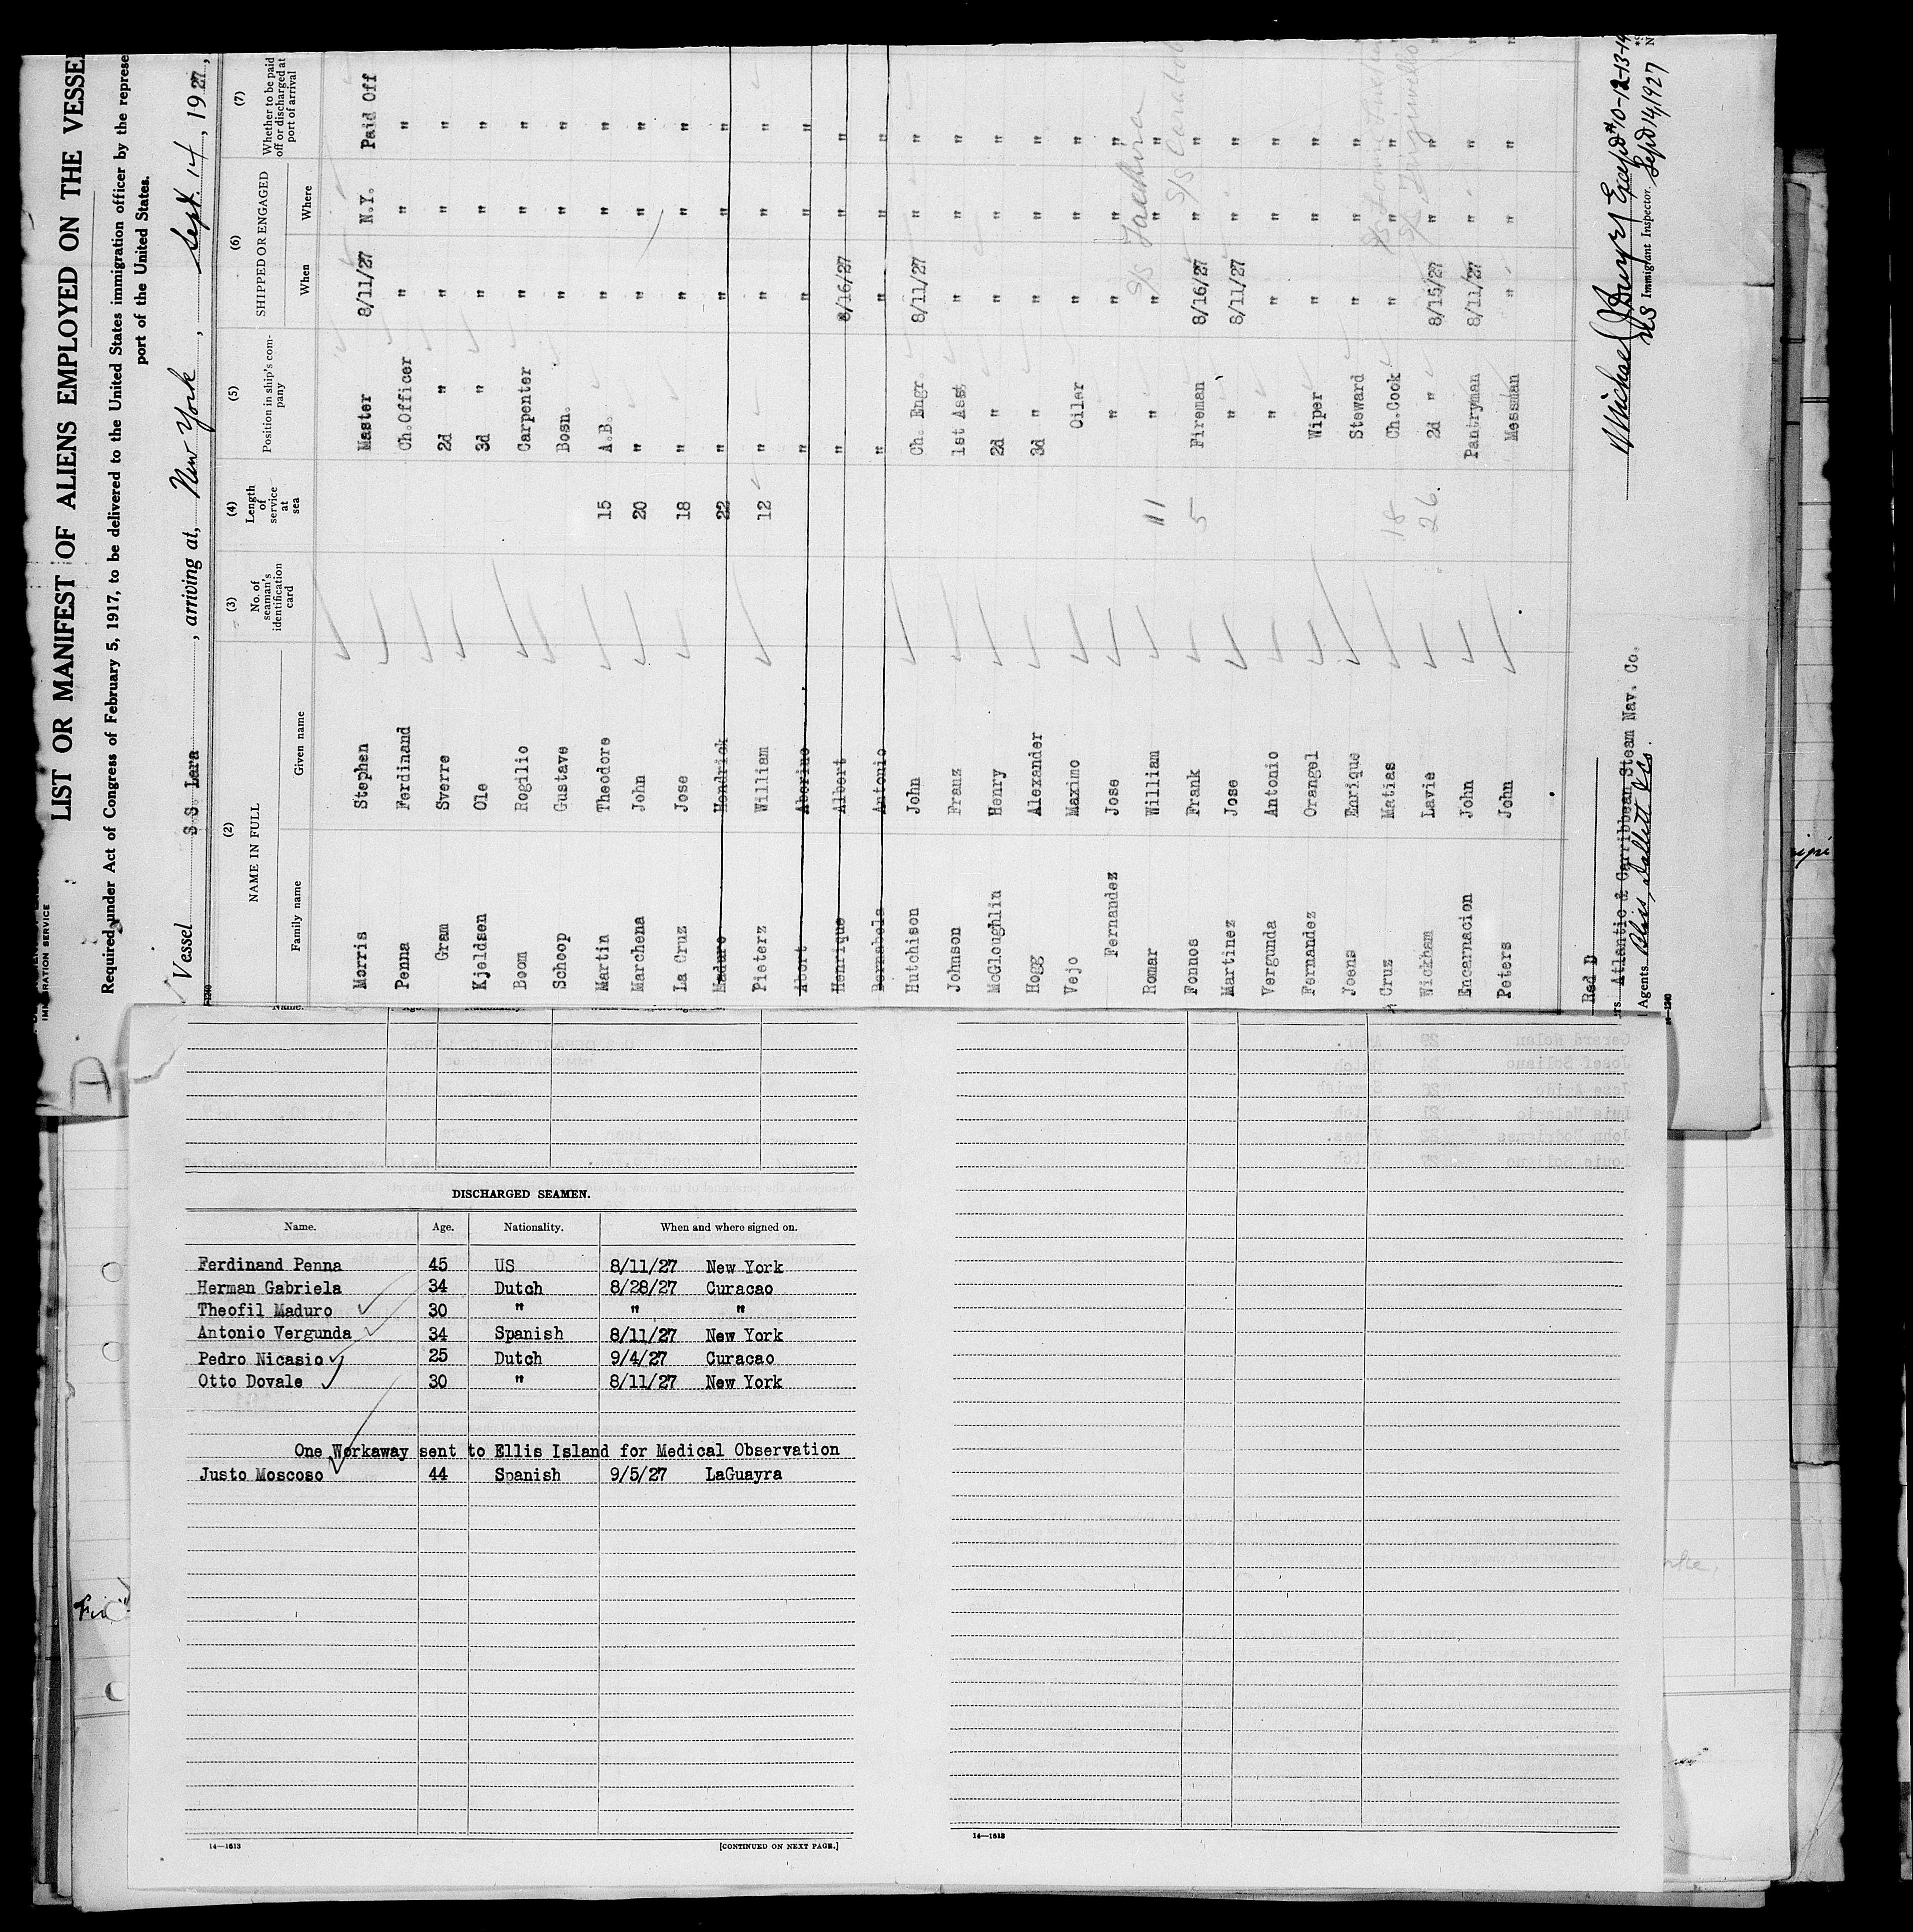 LIST OR MANIFEST OF ALIENS EMPLOYED ON THE VESSE
IMMIGRATION SERVICE
Required under Act of Congress of February 5, 1917, to be delivered to the United States immigration officer by the represe
port of the United States.
Vessel S.S. Lara, arriving at, New York, Sept. 14, 1927,
(2) (3) (4) (5) (6) (7)
NAME IN FULL No. of seaman's identification card Length of service at sea Position in ship's company SHIPPED OR ENGAGED Whether to be paid off or discharged at port of arrival
Family name Given name When Where
Morris Stephen Master 8/11/27 N.Y. Paid Off
Penna Ferdinand Ch.Officer " " "
Gram Sverre 2d " " " "
Kjeldsen Ole 3d " " " "
Boom Rogilio Carpenter " " "
Schoop Gustave Bosn. " " "
Martin Theodore 15 A.B. " " "
Marchena John 20 " " " "
La Cruz Jose 18 " " " "
Maduro Hendrick 22 " " " "
Pieterz William 12 " " " "
Abort Aborius " " "
Henrique Albert " 8/16/27 " "
Bernabela Antonio " " " "
Hutchison John Ch. Engr. 8/11/27 " "
Johnson Franz 1st Asst " " "
McGloughlin Henry 2d " " " "
Hogg Alexander 3d " " " "
Vejo Maximo Oiler " " "
Fernandez Jose " " " "
Romar William 11 " " " "
Fonnos Frank 5 Fireman 8/16/27 " "
Martinez Jose " 8/11/27 " "
Vergunda Antonio " " " "
Fernandez Orangel Wiper " " "
Joens Enrique Steward " " "
Cruz Matias 18 Ch.Cook " " "
Wickham Lavie 26. 2d " 8/15/27 " "
Encarnacion John Pantryman 8/11/27 " "
Peters John Messman " " "
S/S
S/S
Red D
rs Atlantic & Carribbean Steam Nav. Co.
Agents Bliss, Dallett & Co.
Michael J Dwyer Except # 10-12-13-14
US Immigrant Inspector. Sept 14, 1927
14—1240
DISCHARGED SEAMEN.
Name. Age. Nationality. When and where signed on.
Ferdinand Penna 45 US 8/11/27 New York
Herman Gabriela 34 Dutch 8/28/27 Curacao
Theofil Maduro 30 " " "
Antonio Vergunda 34 Spanish 8/11/27 New York
Pedro Nicasio 25 Dutch 9/4/27 Curacao
Otto Dovale 30 " 8/11/27 New York
One Workaway sent to Ellis Island for Medical Observation
Justo Moscoso 44 Spanish 9/5/27 LaGuayra
14—1613
[CONTINUED ON NEXT PAGE.]
14—1613